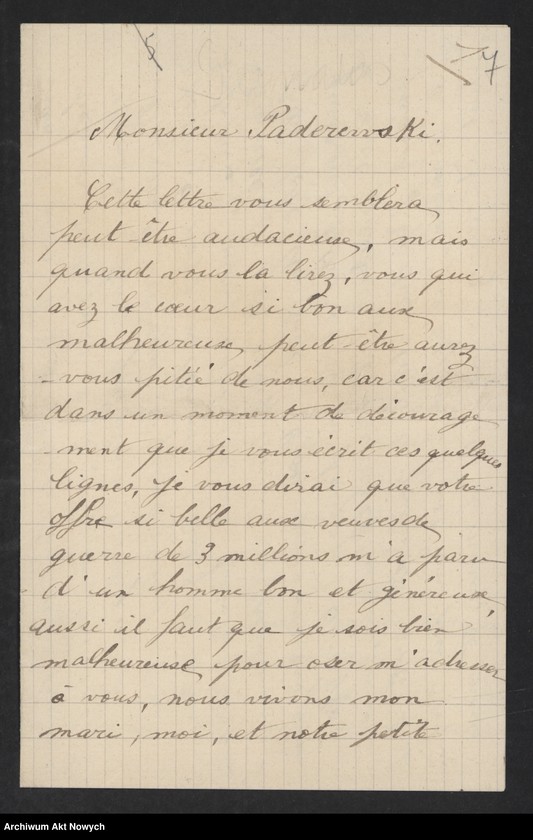 7
Monsieur Paderewski.
Cette lettre vous semblera
peut être audacieuse, mais
quand vous la lirez, vous qui
avez le cœur si bon aux
malheureux peut-être aurez
-vous pitié de nous, car c'est
dans un moment de décourage
-ment que je vous écrit ces quelques
lignes, je vous dirai que votre
offre si belle aux veuves de
guerre de 3 millions m'a paru
d'un homme bon et généreux,
aussi il faut que je sois bien
malheureuse pour oser m'adresser
à vous, nous vivons mon
mari, moi, et notre petite
Archiwum Akt Nowych